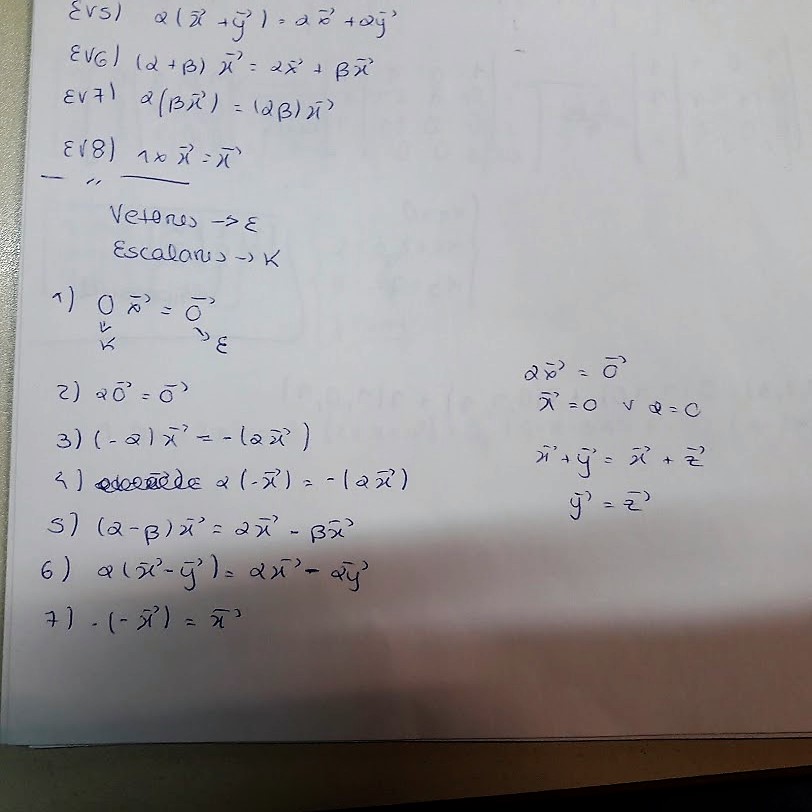 EV5) α(x⃗ + y⃗) = αx⃗ + αy⃗
EV6) (α + β) x⃗ = αx⃗ + βx⃗
EV7) α(βx⃗) = (αβ)x⃗
EV8) 1 x x⃗ = x⃗
— " —
Vetores -> E
Escalares -> K
1) 0 x⃗ = 0⃗
K E
2) α0⃗ = 0⃗
3) (-α)x⃗ = -(αx⃗)
4) α(-x⃗) = -(αx⃗)
5) (α-β)x⃗ = αx⃗ - βx⃗
6) α(x⃗-y⃗) = αx⃗ - αy⃗
7) -(-x⃗) = x⃗
αx⃗ = 0⃗
x⃗ = 0 v α = 0
x⃗ + y⃗ = x⃗ + z⃗
y⃗ = z⃗